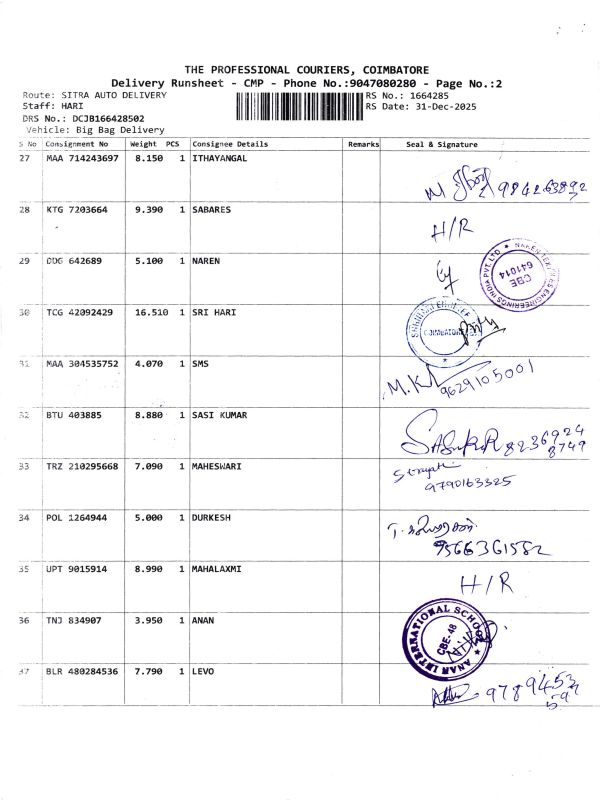 THE PROFESSIONAL COURIERS, COIMBATORE
Delivery Runsheet - CMP - Phone No.:9047080280 - Page No.:2
Route: SITRA AUTO DELIVERY RS No.: 1664285
Staff: HARI RS Date: 31-Dec-2025
DRS No.: DCJB166428502
Vehicle: Big Bag Delivery
S No Consignment No Weight PCS Consignee Details Remarks Seal & Signature
27 MAA 714243697 8.150 1 ITHAYANGAL
28 KTG 7203664 9.390 1 SABARES
H/R
29 DUG 642689 5.100 1 NAREN
CBE 641014
30 TCG 42092429 16.510 1 SRI HARI
COIMBATORE
31 MAA 304535752 4.070 1 SMS
9629105001
32 BTU 403885 8.880 1 SASI KUMAR
8236924
8749
33 TRZ 210295668 7.090 1 MAHESWARI
9790163325
34 POL 1264944 5.000 1 DURKESH
9566361582
35 UPT 9015914 8.990 1 MAHALAXMI
H/R
36 TNJ 834907 3.950 1 ANAN
ANAN INTERNATIONAL SCHOOL
CBE-48
37 BLR 480284536 7.790 1 LEVO
9789453